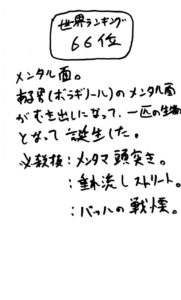 世界ランキング
66位
メンタル面。
ある男(ボラギノール)のメンタル面
がむき出しになって、一匹の生物
となって誕生した。
必殺技:メンタマ頭突き。
:垂れ流しストリート。
:バッハの戦慄。